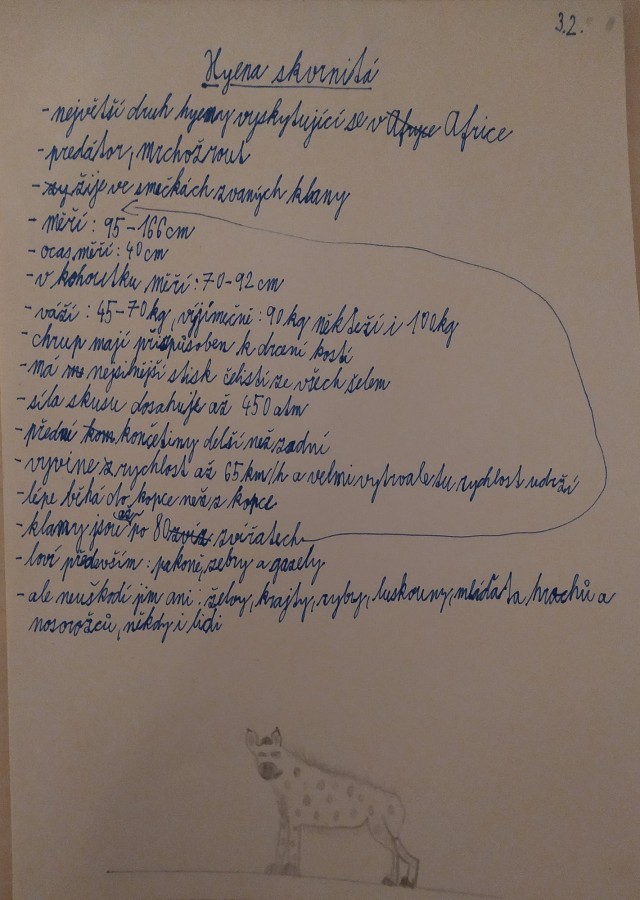 3.2.
Hyena skvrnitá
- největší druh hyeny vyskytující se v Afryce Africe
- predátor, mrchožrout
- zy žije ve smečkách zvaných klany
- měří : 95-166 cm
- ocas měří : 40 cm
- v kohoutku měří : 70-92 cm
- váží : 45-70 kg, výjimečně : 90 kg někteží i 100 kg
- chrup mají přizpůsoben k drcení kostí
- má me nejsilnější stisk čelistí ze všech šelem
- síla skusu dosahuje až 450 atm
- přední kom končetiny delší než zadní
- vyvine z rychlost až 65 km/h a velmi vytrvale tu rychlost udrží
- lépe běhá do kopce než z kopce
- klany jsou až po 80 zviz zvířatech
- loví především : pakoně, zebry a gazely
- ale neuškodí jim ani : želvy, krajty, ryby, luskouny, mláďata hrochů a
nosorožců, někdy i lidi